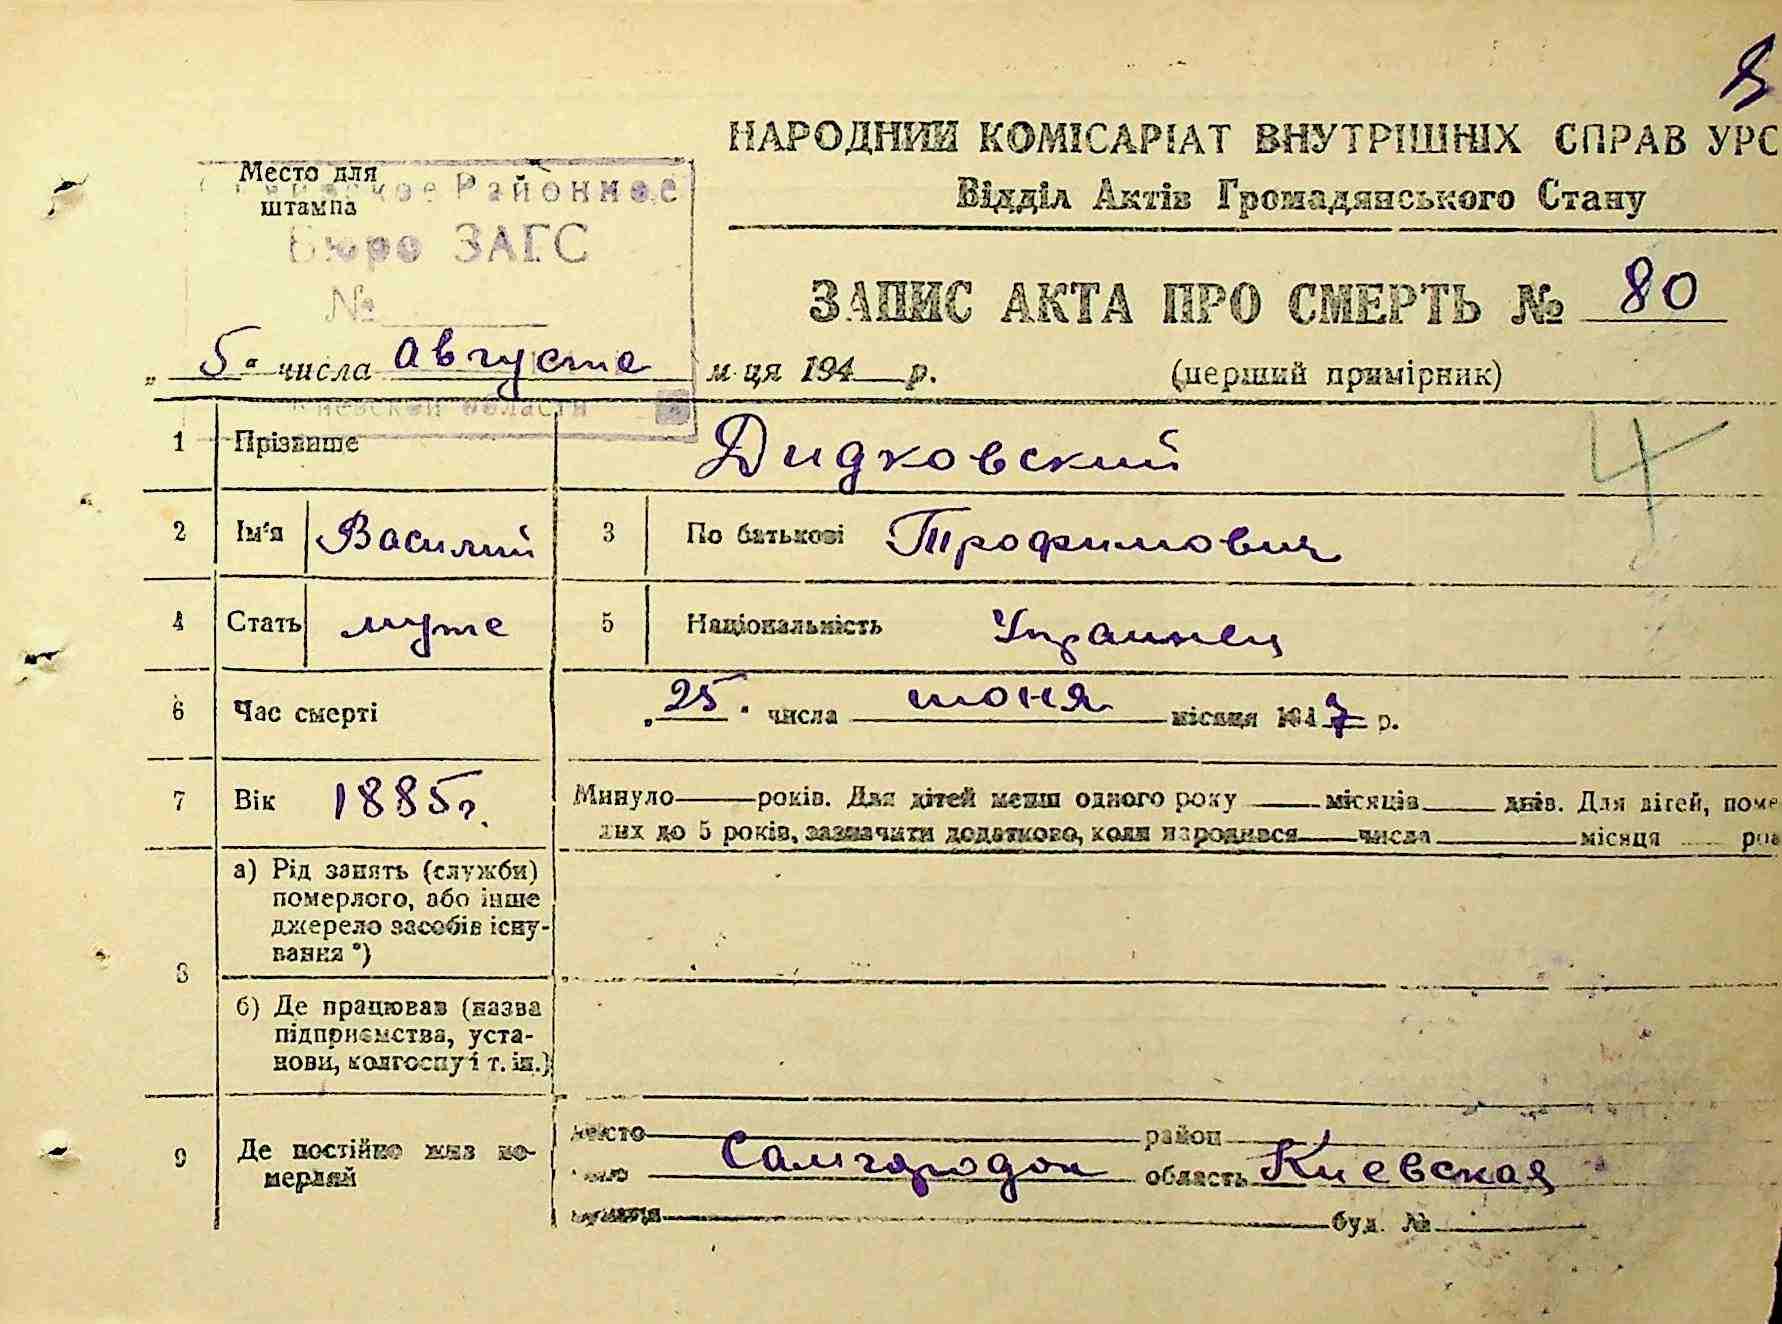 8
НАРОДНИЙ КОМІСАРІАТ ВНУТРІШНІХ СПРАВ УРС
Відділ Актів Громадянського Стану
Место для
штампа
Районное
Бюро ЗАГС
№
Киевской области
ЗАПИС АКТА ПРО СМЕРТЬ № 80
„ 5 " числа августа м-ця 194 р.
(перший примірник)
4
1 Прізвище Дидковский
2 Ім'я Василий 3 По батькові Трофимович
4 Стать муже 5 Національність Украинец
6 Час смерті „ 25 " числа июня місяця 1947 р.
7 Вік 1885 г. Минуло — років. Для дітей менш одного року — місяців — днів. Для дітей, поме
лих до 5 років, зазначити додатково, коли народився — числа — місяця — ро
8 а) Рід занять (служби)
померлого, або інше
джерело засобів існу-
вання *)
б) Де працював (назва
підприємства, уста-
нови, колгоспу і т. ін.)
9 Де постійно жив по-
мерлий
місто район
село Самгородок область Киевская
вулиця буд. №